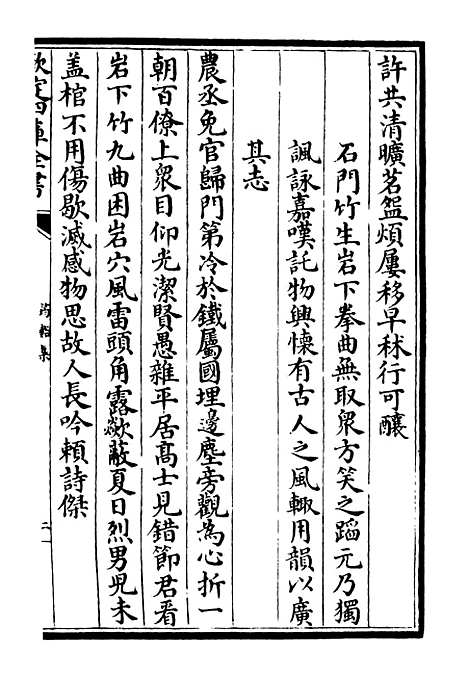 許共清曠茗盌煩屢移早秫行可釀
石門竹生岩下拳曲無取衆方笑之蹈元乃獨
諷詠嘉嘆託物興懐有古人之風輙用韻以廣
其志
農丞免官歸門第冷於鐵屬國埋邊塵旁觀為心折一
朝百僚上衆目仰光潔賢愚雜平居髙士見錯節君看
岩下竹九曲困岩穴風雷頭角露歘蔽夏日烈男兒未
蓋棺不用傷歇滅感物思故人長吟頼詩傑
欽定四庫全書